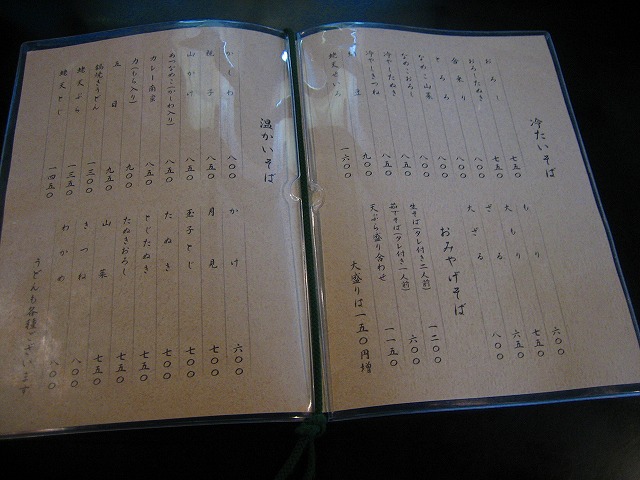 冷たいそば
おろし 七五〇
おろしたぬき 七五〇
合乗り 八〇〇
とろろ 八〇〇
なめこ山菜 八〇〇
なめこおろし 八〇〇
冷やしたぬき 八五〇
冷やしきつね 八五〇
九〇〇
一六〇〇
もり 六〇〇
大もり 七五〇
ざる 六五〇
大ざる 八〇〇
おみやげそば
生そば(タレ付き二人前) 一二〇〇
茹でそば(タレ付き一人前) 六〇〇
天ぷら盛り合わせ 一一五〇
大盛りは一五〇円増
温かいそば
かしわ 八〇〇
親子 八五〇
山かけ 八五〇
あつなめこ(かしわ入り) 八五〇
カレー南蛮 八五〇
力(もち入り) 九〇〇
五目 九五〇
鍋焼きうどん 一三〇〇
海天ぷら 一三五〇
海天とじ 一四五〇
かけ 六〇〇
月見 七〇〇
玉子とじ 七〇〇
たぬき 七〇〇
とじたぬき 七五〇
たぬきおろし 七五〇
山菜 七五〇
きつね 八〇〇
わかめ 八〇〇
うどんも各種ございます